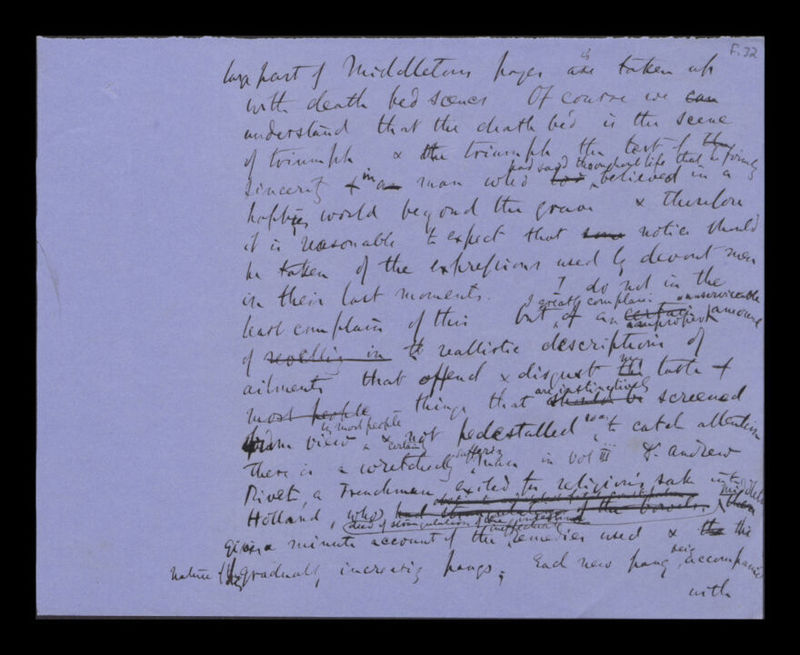 F.32
large part of Middletons pages is are taken up
with death bed scenes Of course we can
understand that the death bed is the scene
of triumph & the triumph the test of the
had said throughout life that he firmly
sincerity in a man who believed in a
happier world beyond the grave & therefore
it is reasonable to expect that some notice should
be taken of the expressions used by devout men
in their last moments. I do not in the
I greatly complain unserviceable
least complain of this but of an certain amount
of revelling in realistic descriptions of
ailments that offend & disgust the taste &
are instinctively
most people things that should be screened
by most people
from view & not pedestalled to catch attention
certain
there is a wretchedly man in vol III Dr. Andrew
Rivet, a Frenchman exiled for religion's sake
Holland, who had of the bowels,
died of strangulation of the
a minute account of the remedies used & the the
nature gradually increasing pangs; Each new pang being accompanied
with